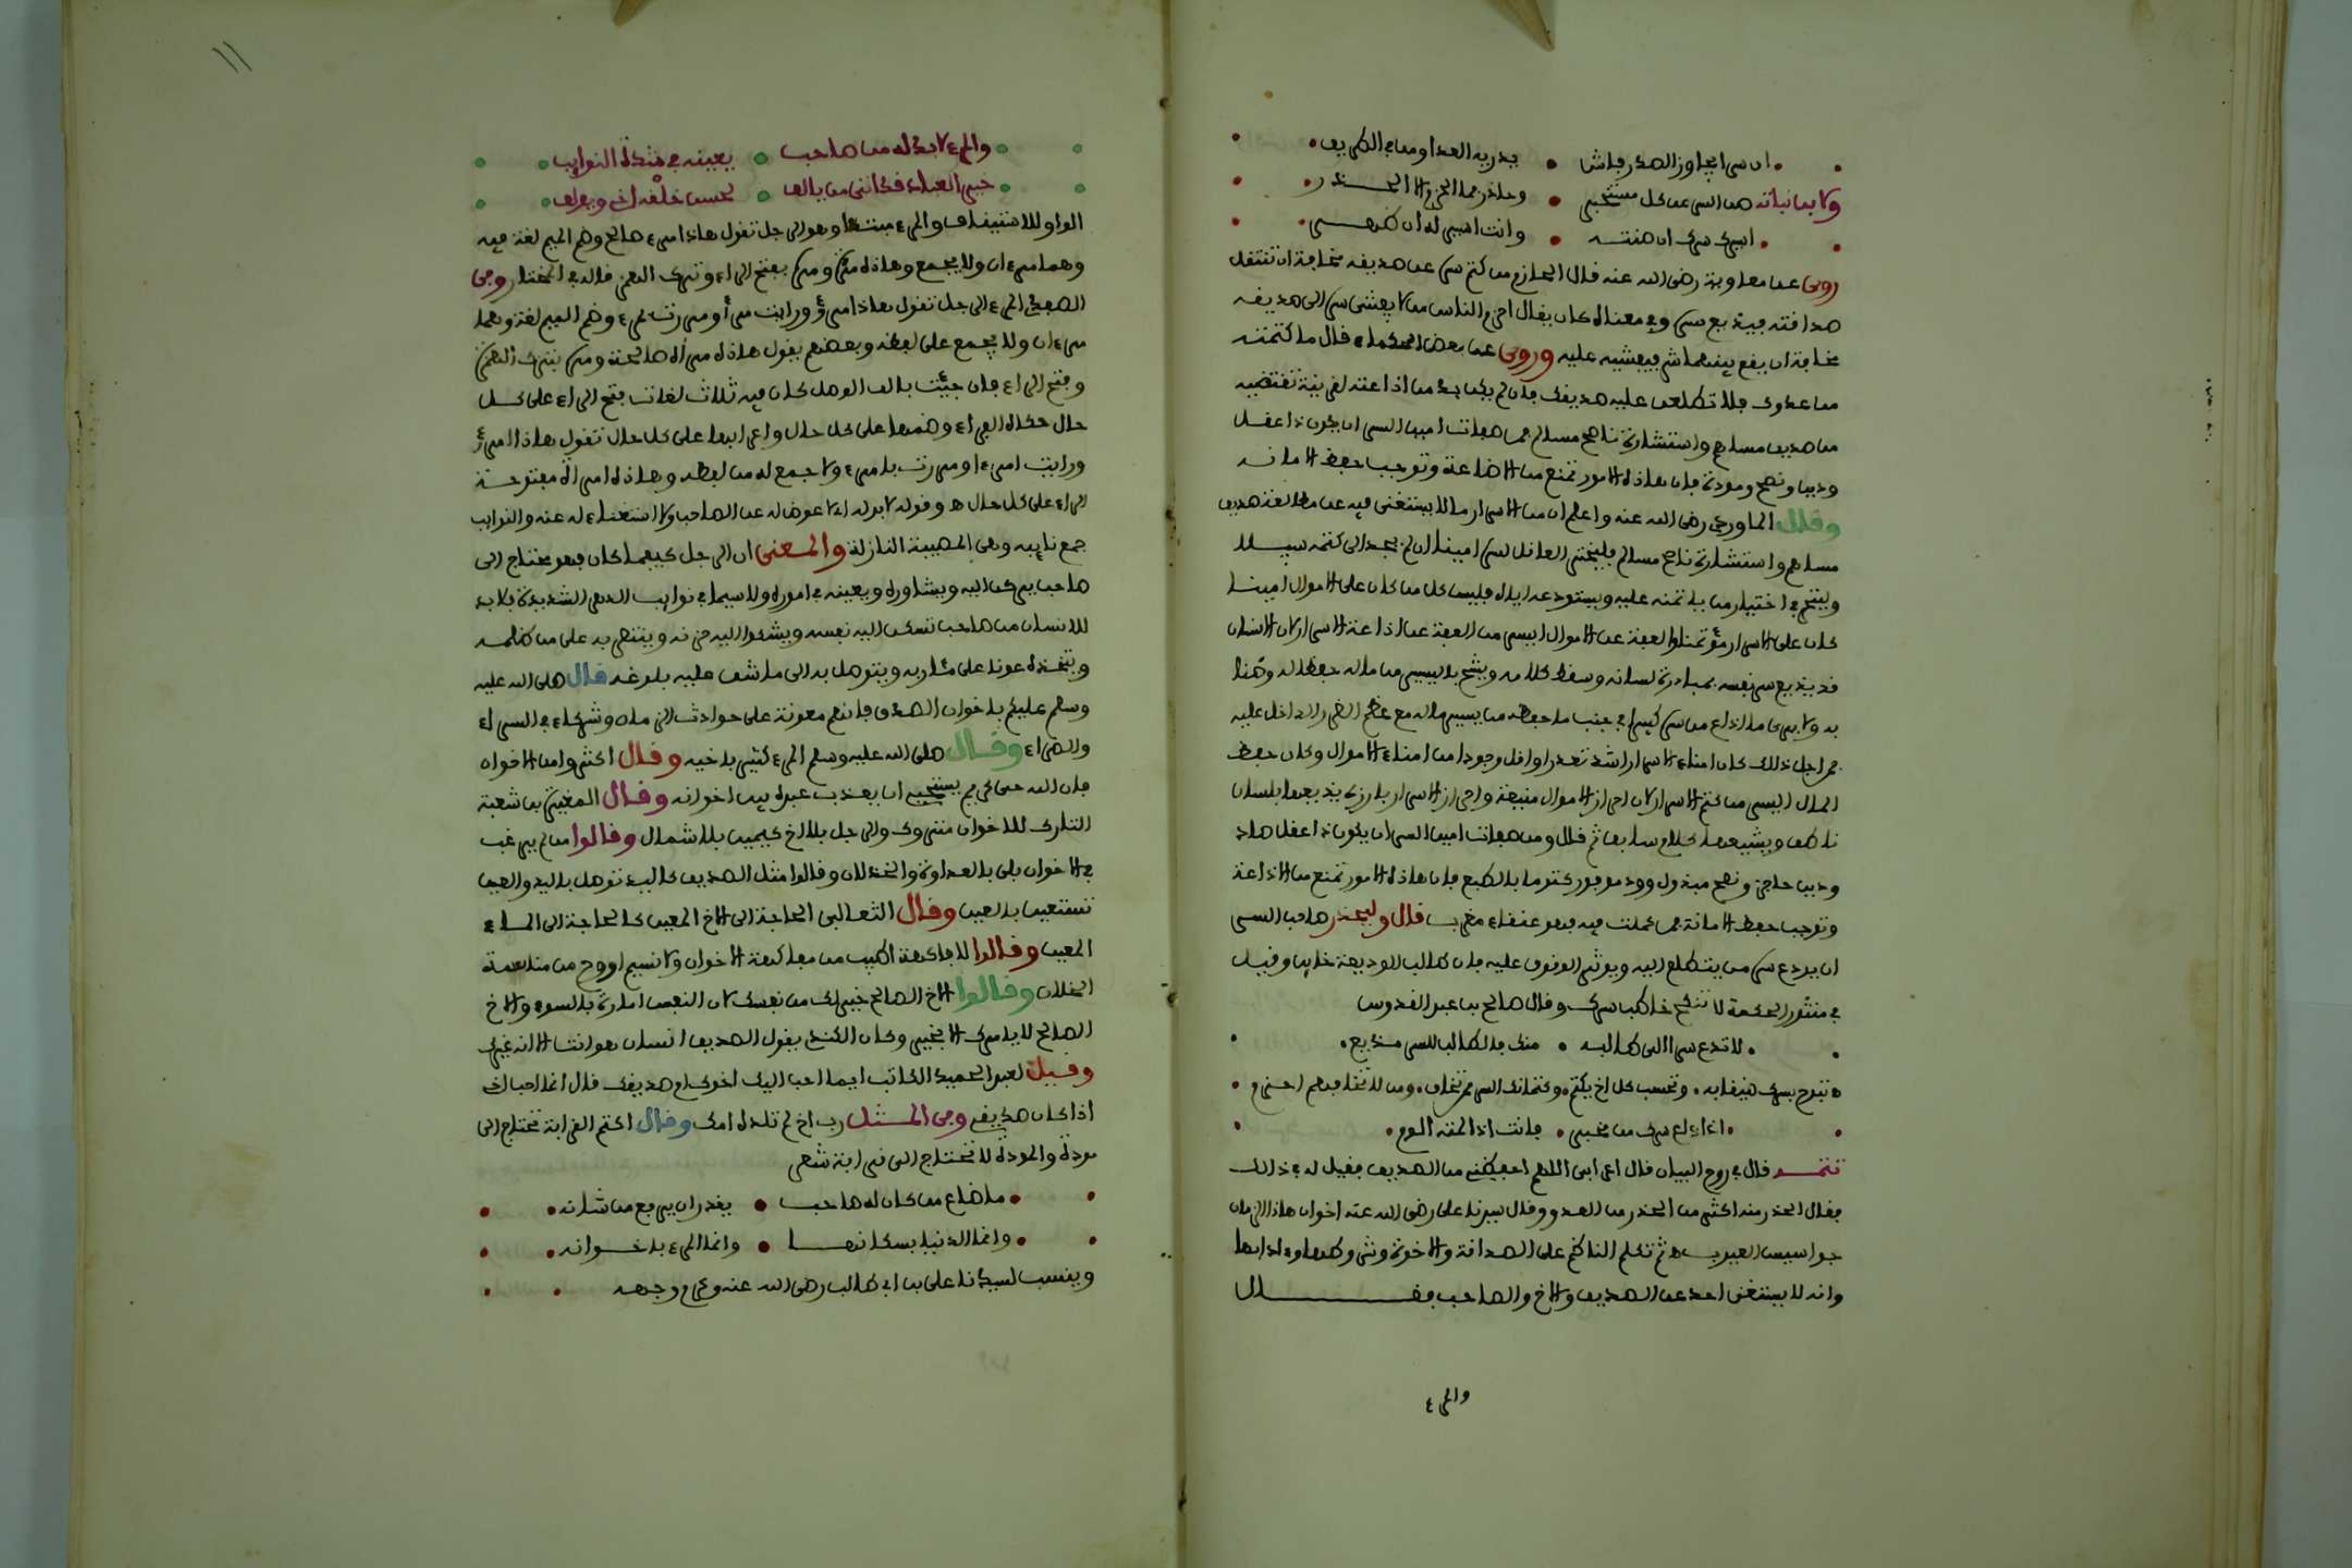 ان سرا يجاوز الصدر فاش • يدريه العدا ومن في الطريق
ولابن نباتة صن السر عن كل مستخبر • وحاذر فما الحزم الا الحذر
اسيرك سرك ان صنته • وانت اسير له ان ظهر
روي عن معاوية رضى الله عنه قال الحازم من كتم سره عن صديقه مخافة ان تنتقل
صداقته فيذيع سره وفي معناه كان يقال احزم الناس من لا يفشي سره الى صديقه
مخافة ان يقع بينهما شر فيفشيه عليه وروي عن بعض الحكماء قال ما كتمته
من عدوك فلا تطلعن عليه صديقك فان لم يكن بد من اذاعته لقرينة تقتضيه
من صديق مساهم واستشارة ناصح مسالم فمن صفات امين السر ان يكون ذا عقل
ودين ونصح ومودة فان هاذه الامور تمنع من الاضاعة وتوجب حفظ الامانه
وقال الماوردي رضى الله عنه واعلم ان من الاسرار ما لا يستغنى فيه عن مطالعة صديق
مساهم واستشارة ناصح مسالم فليختر العاقل لسره امينا ان لم يجد الى كتمه سبيلا
وليتحر في اختيار من ياتمنه عليه ويستودعه اياه فليس كل من كان على الاموال امينا
كان على الاسرار مؤتمنا والعفة عن الاموال ايسر من العفة عن اذاعة الاسرار لان الانسان
قد يذيع سر نفسه بمبادرة لسانه وسقط كلامه ويشح باليسير من ماله حفظا له وضنا
به ولا يرى ما اذاع من سره كبيرا في جنب ما حفظه من يسير ماله مع عظم الضرر الداخل عليه
فمن اجل ذلك كان امناء الاسرار اشد تعذرا واقل وجودا من امناء الاموال وكان حفظ
المال ايسر من كتم الاسرار لان احراز الاموال منيعة واحراز الاسرار بارزة يذيعها لسان
ناطق ويشيعها كلام سابق ثم قال ومن صفات امين السر ان يكون ذا عقل صاد
ودين حاجز ونصح مبذول وود موفور كتوما بالطبع فان هاذه الامور تمنع من الاذاعة
وتوجب حفظ الامانة فمن كملت فيه فهو عنقاء مغرب قال وليحذر صاحب السر
ان يودع سره من يتطلع اليه ويوثر الوقوف عليه فان طالب الوديعة خاين وقيل
في منثور الحكمة لا تنكح خاطب سرك وقال صالح بن عبد القدوس
لا تدع سرا الى طالبه • منك فالطالب للسر مذيع
اذا ذاع سرك من مخبر • فانت اذا لمته الوم
تتمـــه قال في روح البيان قال اعرابي اللهم احفظني من الصديق فقيل له في ذالك
فقال الحذر منه اكثر من الحذر من العدو وقال سيدنا على رضى الله عنه اخوان هاذا الزمان
جواسيس العيوب ثم تكلم الناظم على الصداقة والاخوة وشروطها وءادابها
وانه لا يستغنى احد عن الصديق والاخ والصاحب فقــــال
والمرء
١١
والمرء لا بد له من صاحب • يعينه في شدة النوايب
خير العباد فكانني من يالف • لحسن خلقه اخي ويولف
الواو للاستيناف والمرء مبتدا وهو الرجل تقول هاذا مرء صالح وضم الميم لغة فيه
وهما مرءان ولا يجمع وهاذه مرأة ومرة بفتح الراء وترك الهمز قاله في المختار وفي
الصحاح المرء الرجل تقول هاذا مرؤ ورايت مرأ ومررت بمرء وضم الميم لغة وهما
مرءان ولا يجمع على لفظه وبعضهم يقول هاذه مرأة صالحة ومرة بترك الهمزة
وفتح الراء فان جيت بالف الوصل كان فيه ثلاث لغات فتح الراء على كل
حال حكاه الفراء وضمها على كل حال واعرابها على كل حال تقول هاذا امرؤ
ورايت امرءا ومررت بامرء ولا جمع له من لفظه وهاذه امراة مفتوحة
الراء على كل حال ه وقوله لا بد له اي لا عوض له عن الصاحب ولا استغناء له عنه والنوايب
جمع نايبه وهي المصيبة النازلة والمعنى ان الرجل كيفما كان فهو محتاج الى
صاحب يركن اليه ويشاوره ويعينه في اموره ولا سيما في نوايب الدهر الشديدة فلا بد
للانسان من صاحب تسكن اليه نفسه ويشكوا اليه حزنه وينتصر به على من ظلمه
ويتخذه عونا على مئاربه ويتوصل به الى ما شق عليه بلوغه قال صلى الله عليه
وسلم عليكم باخوان الصدق فانهم معونة على حوادث الزمان وشركاء في السراء
والضراء وقال صلى الله عليه وسلم المرء كثير باخيه وقال اكثروا من الاخوان
فان الله حي كريم يستحيي ان يعذب عبده بين اخوانه وقال المغيرة بن شعبة
التارك للاخوان متروك والرجل بلا اخ كيمين بلا شمال وقالوا من لم يرغب
في الاخوان بلي بالعداوة والخذلان وقالوا مثل الصديق كاليد توصل باليد والعين
تستعين بالعين وقال الثعالبي الحاجة الى الاخ المعين كالحاجة الى الماء
المعين وقالوا لا فاكهة اطيب من مفاكهة الاخوان ولا نسيم اروح من مناسمة
الخلان وقالوا الاخ الصالح خير لك من نفسك لان النفس امارة بالسوء والاخ
الصالح لا يامرك الا بخير وكان الكندي يقول الصديق انسان هو انت الا انه غيرك
وقيل لعبد الحميد الكاتب ايما احب اليك اخوك ام صديقك قال انما احب اخي
اذا كان صديقي وفي المثل رب اخ لم تلده امك وقال اكثم القرابة تحتاج الى
مودة والمودة لا تحتاج الى قرابة شعر
ما ضاع من كان له صاحب • يقدر ان يرفع من شانه
وانما الدنيا بسكانها • وانما المرء باخوانه
وينسب لسيدنا على بن ابي طالب رضى الله عنه وكرم وجهه